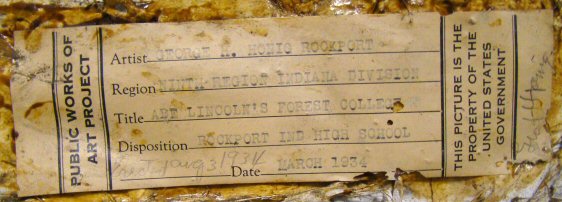 PUBLIC WORKS OF
ART PROJECT
Artist GEORGE H. HONIG ROCKPORT
Region NINTH REGION INDIANA DIVISION
Title ABE LINCOLN'S FOREST COLLEGE
Disposition ROCKPORT IND HIGH SCHOOL
Date MARCH 1934
THIS PICTURE IS THE
PROPERTY OF THE
UNITED STATES
GOVERNMENT